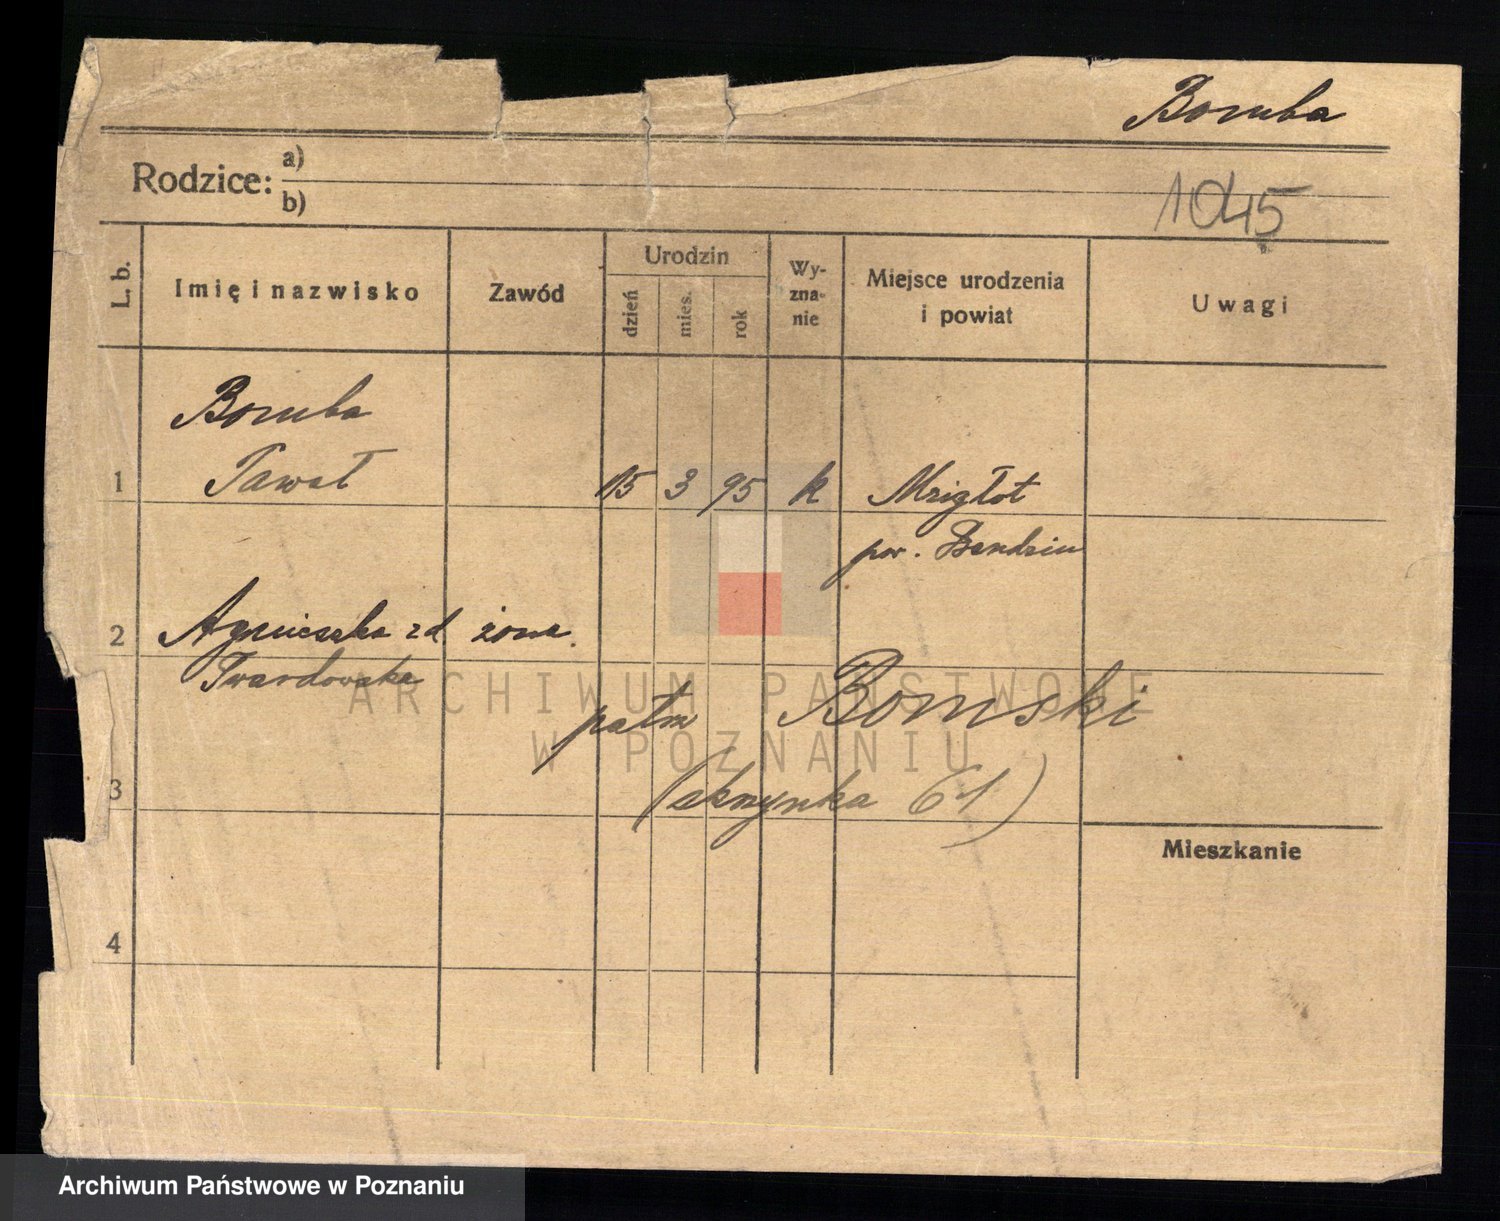 Bomba
Rodzice: a)
b)
1045
L. b.
Imię i nazwisko
Zawód
Urodzin
dzień
mies.
rok
Wy-
zna-
nie
Miejsce urodzenia
i powiat
Uwagi
Bomba
1 Paweł 15 3 95 k Mrzigłot
pow. Bendzin
2 Agnieszka zd żona.
Twardowska
patrz Bomski
(skrzynka 61)
3
Mieszkanie
4
ARCHIWUM PAŃSTWOWE
W POZNANIU
Archiwum Państwowe w Poznaniu